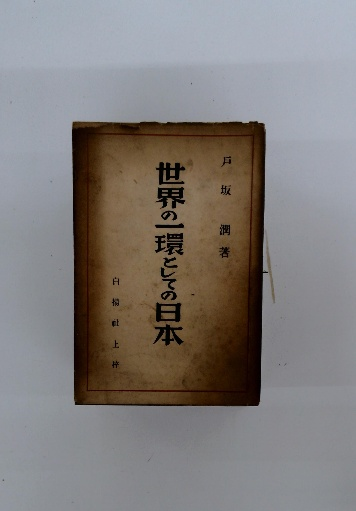 戸坂潤著
世界の一環としての日本
白揚社上梓